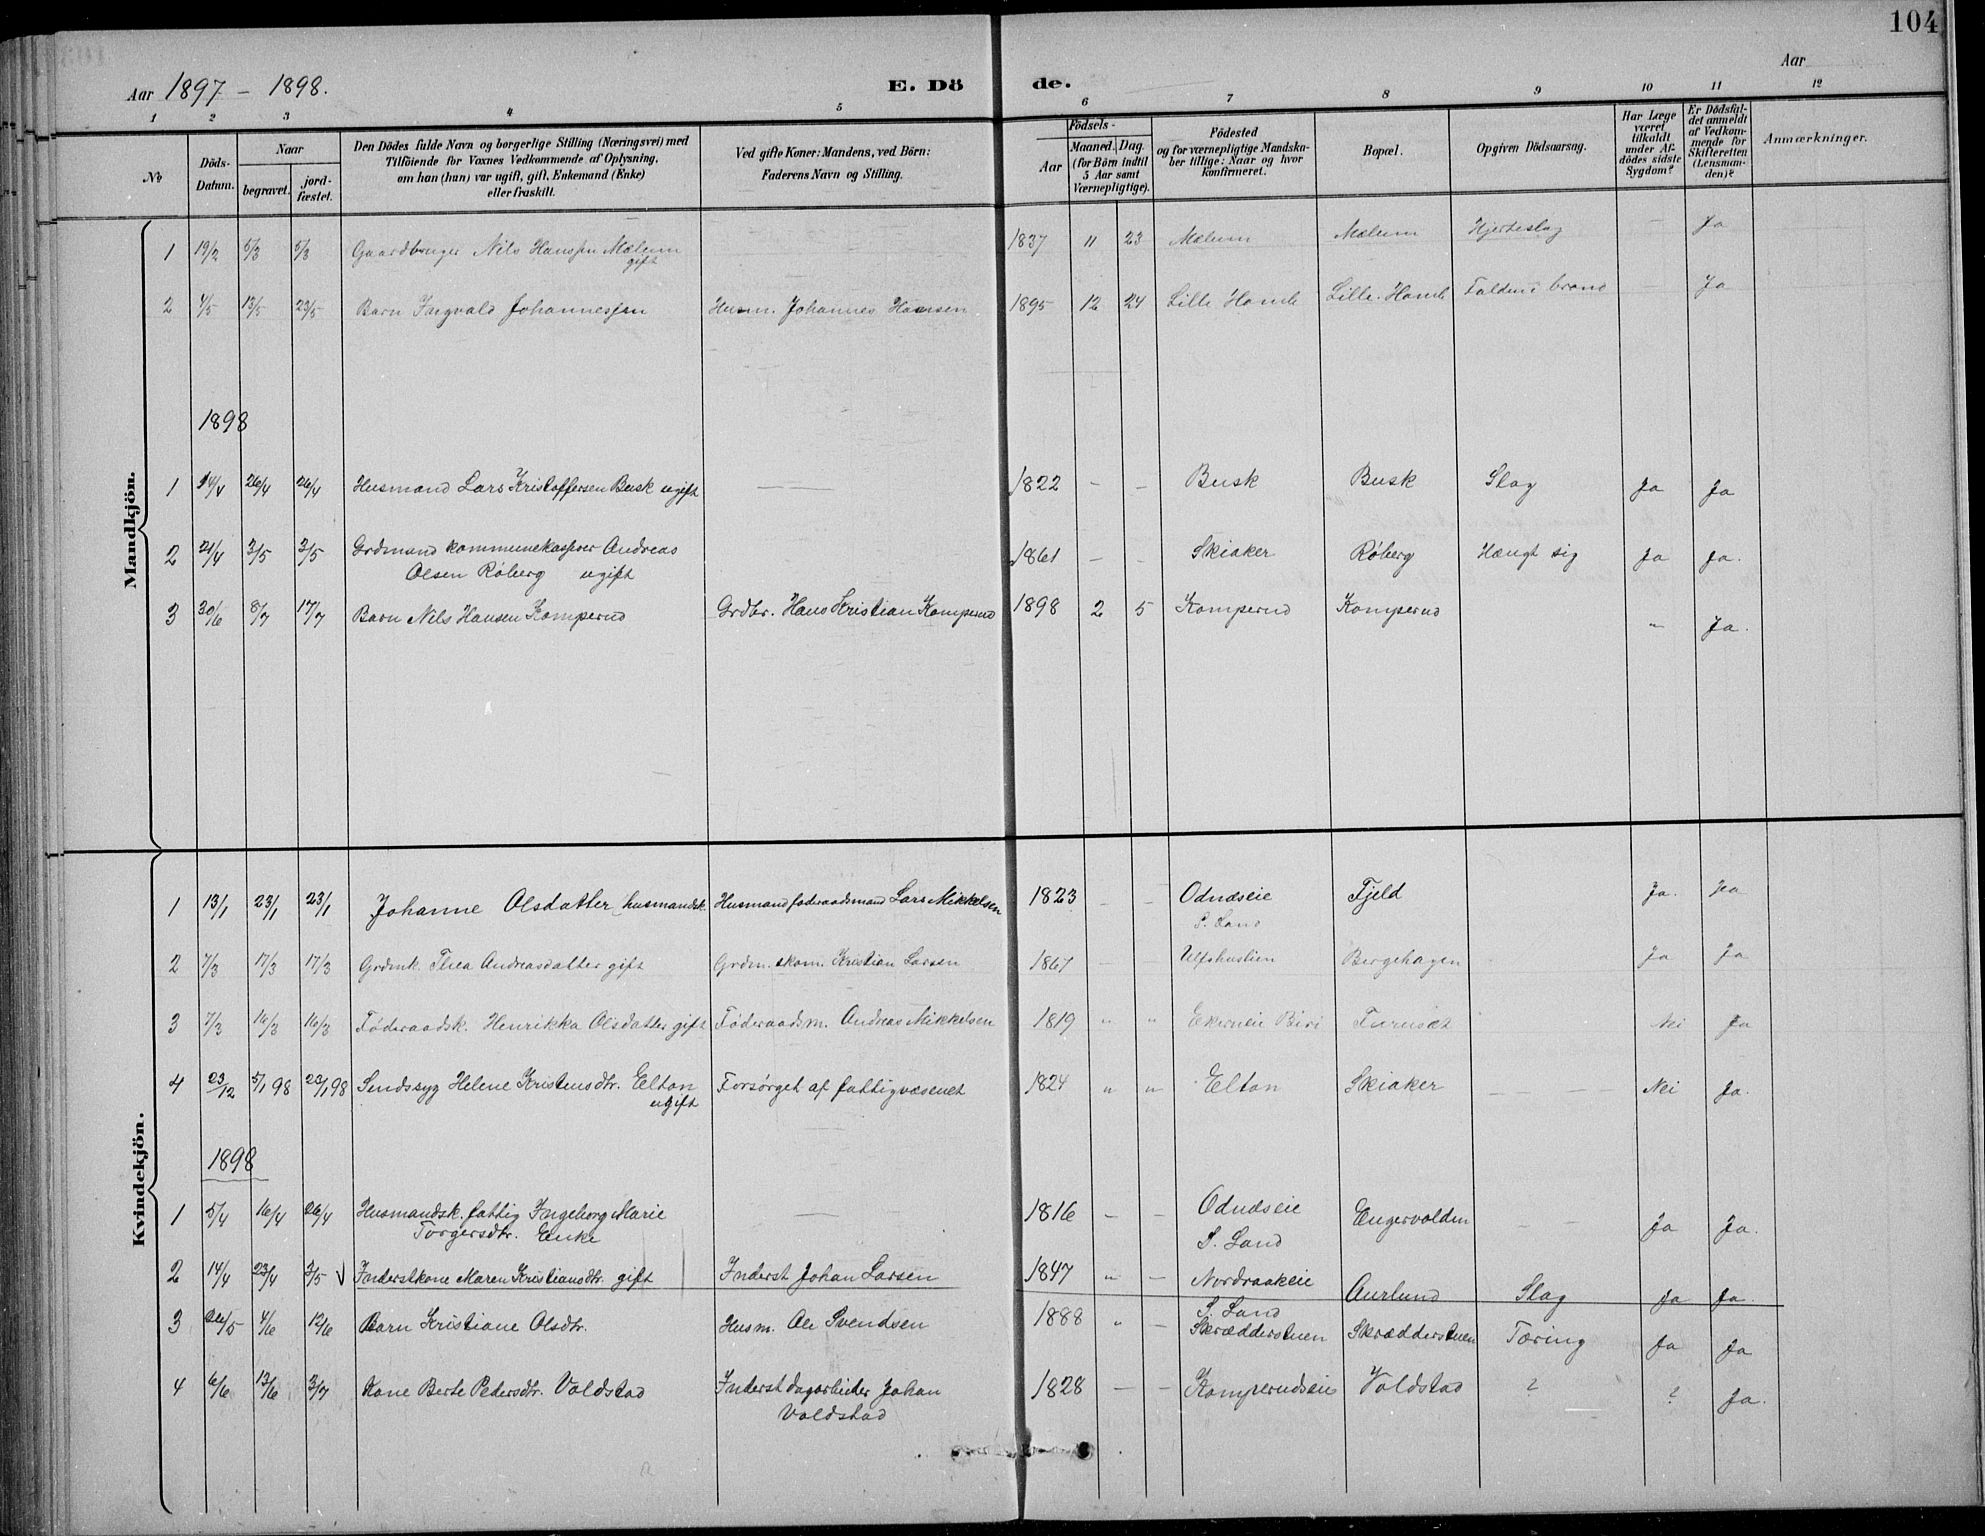 104
Aar 1897 - 1898. E. Dö de. Aar
1 2 3 4 5 6 7 8 9 10 11 12
No
Döds-Datum.
Naar
begravet.
jord-fæstet.
Den Dödes fulde Navn og borgerlige Stilling (Næringsvei) med
Tilföiende for Voxnes Vedkommende af Oplysning,
om han (hun) var ugift, gift, Enkemand (Enke)
eller fraskilt.
Ved gifte Koner: Mandens, ved Börn:
Faderens Navn og Stilling.
Födsels-
Aar
Maaned. Dag.
(for Börn indtil
5 Aar samt
Værnepligtige).
Födested
og for værnepligtige Mandska-
ber tillige: Naar og hvor
konfirmeret.
Bopæl.
Opgiven Dödsaarsag.
Har Læge
været
tilkaldt
under Af-
dödes sidste
Sygdom?
Er Dödsfal-
det anmeldt
af Vedkom-
mende for
Skifteretten
(Lensman-
den)?
Anmærkninger.
Mandkjön.
1 19/2 5/3 5/3 Gaardbruger Nils Hanssen Mælum 1837 11 23 Mælum Mælum Hjerteslag — Ja
gift
2 4/5 13/5 23/5 Barn Ingvald Johannessen Husm. Johannes Hansen 1895 12 24 Lille Homle Lille Homle Falden i brønd — Ja
1898
1 14/4 26/4 26/4 Husmand Lars Kristoffersen Busk ugift — 1822 - - Busk Busk Slag Ja Ja
2 21/4 3/5 3/5 Grdmand kommunekasserer Andreas 1861 - - Skiaker Røberg Hængt sig Ja Ja.
Olsen Røberg ugift
3 30/6 8/7 17/7 Barn Nils Hansen Komperud Grdbr. Hans Kristian Komperud 1898 2 5 Komperud Komperud " Ja.
Kvindekjön.
1 13/1 23/1 23/1 Johanne Olsdatter husmandsk. Husmand føderaadsmand Lars Mikkelsen 1823 - - Odnæseie Fjeld Ja. Ja
S. Land
2 7/3 17/3 17/3 Grdmk. Thea Andreasdatter gift Grdm. skom. Kristian Larsen 1867 - Ulfshuslien Bergehagen Ja Ja
3 7/3 16/3 16/3 Føderaadsk. Henrikka Olsdatter gift Føderaadsm. Andreas Mikkelsen 1819 " " Ekerneie Biri Furuset Nei Ja
4 23/12 5/1 98 23/1 98 Sindssyg Helene Kristensdtr. Elton Forsørget af fattigvæsenet 1824 " " Elton Skiaker - - - Nei Ja.
ugift
1898
1 5/4 16/4 26/4 Husmandsk. fattig Ingeborg Marie — 1816 - - Odnæseie Engervolden - - Ja Ja.
Torgersdtr. Enke S. Land
2 14/4 23/4 3/5 √ Inderstkone Maren Kristiansdtr. gift Inderst Johan Larsen 1847 " - Nordraakeie Aurlund Slag Ja Ja.
S. Land
3 26/5 4/6 12/6 Barn Kristiane Olsdtr. Husm. Ole Svendsen 1888 " - Skrædderstuen Skrædderstuen Tæring Ja Ja
4 6/6 13/6 3/7 Kone Berte Pedersdtr. Voldstad Inderst dagarbeider Johan 1828 - - Komperudseie Voldstad ? ? Ja.
Voldstad